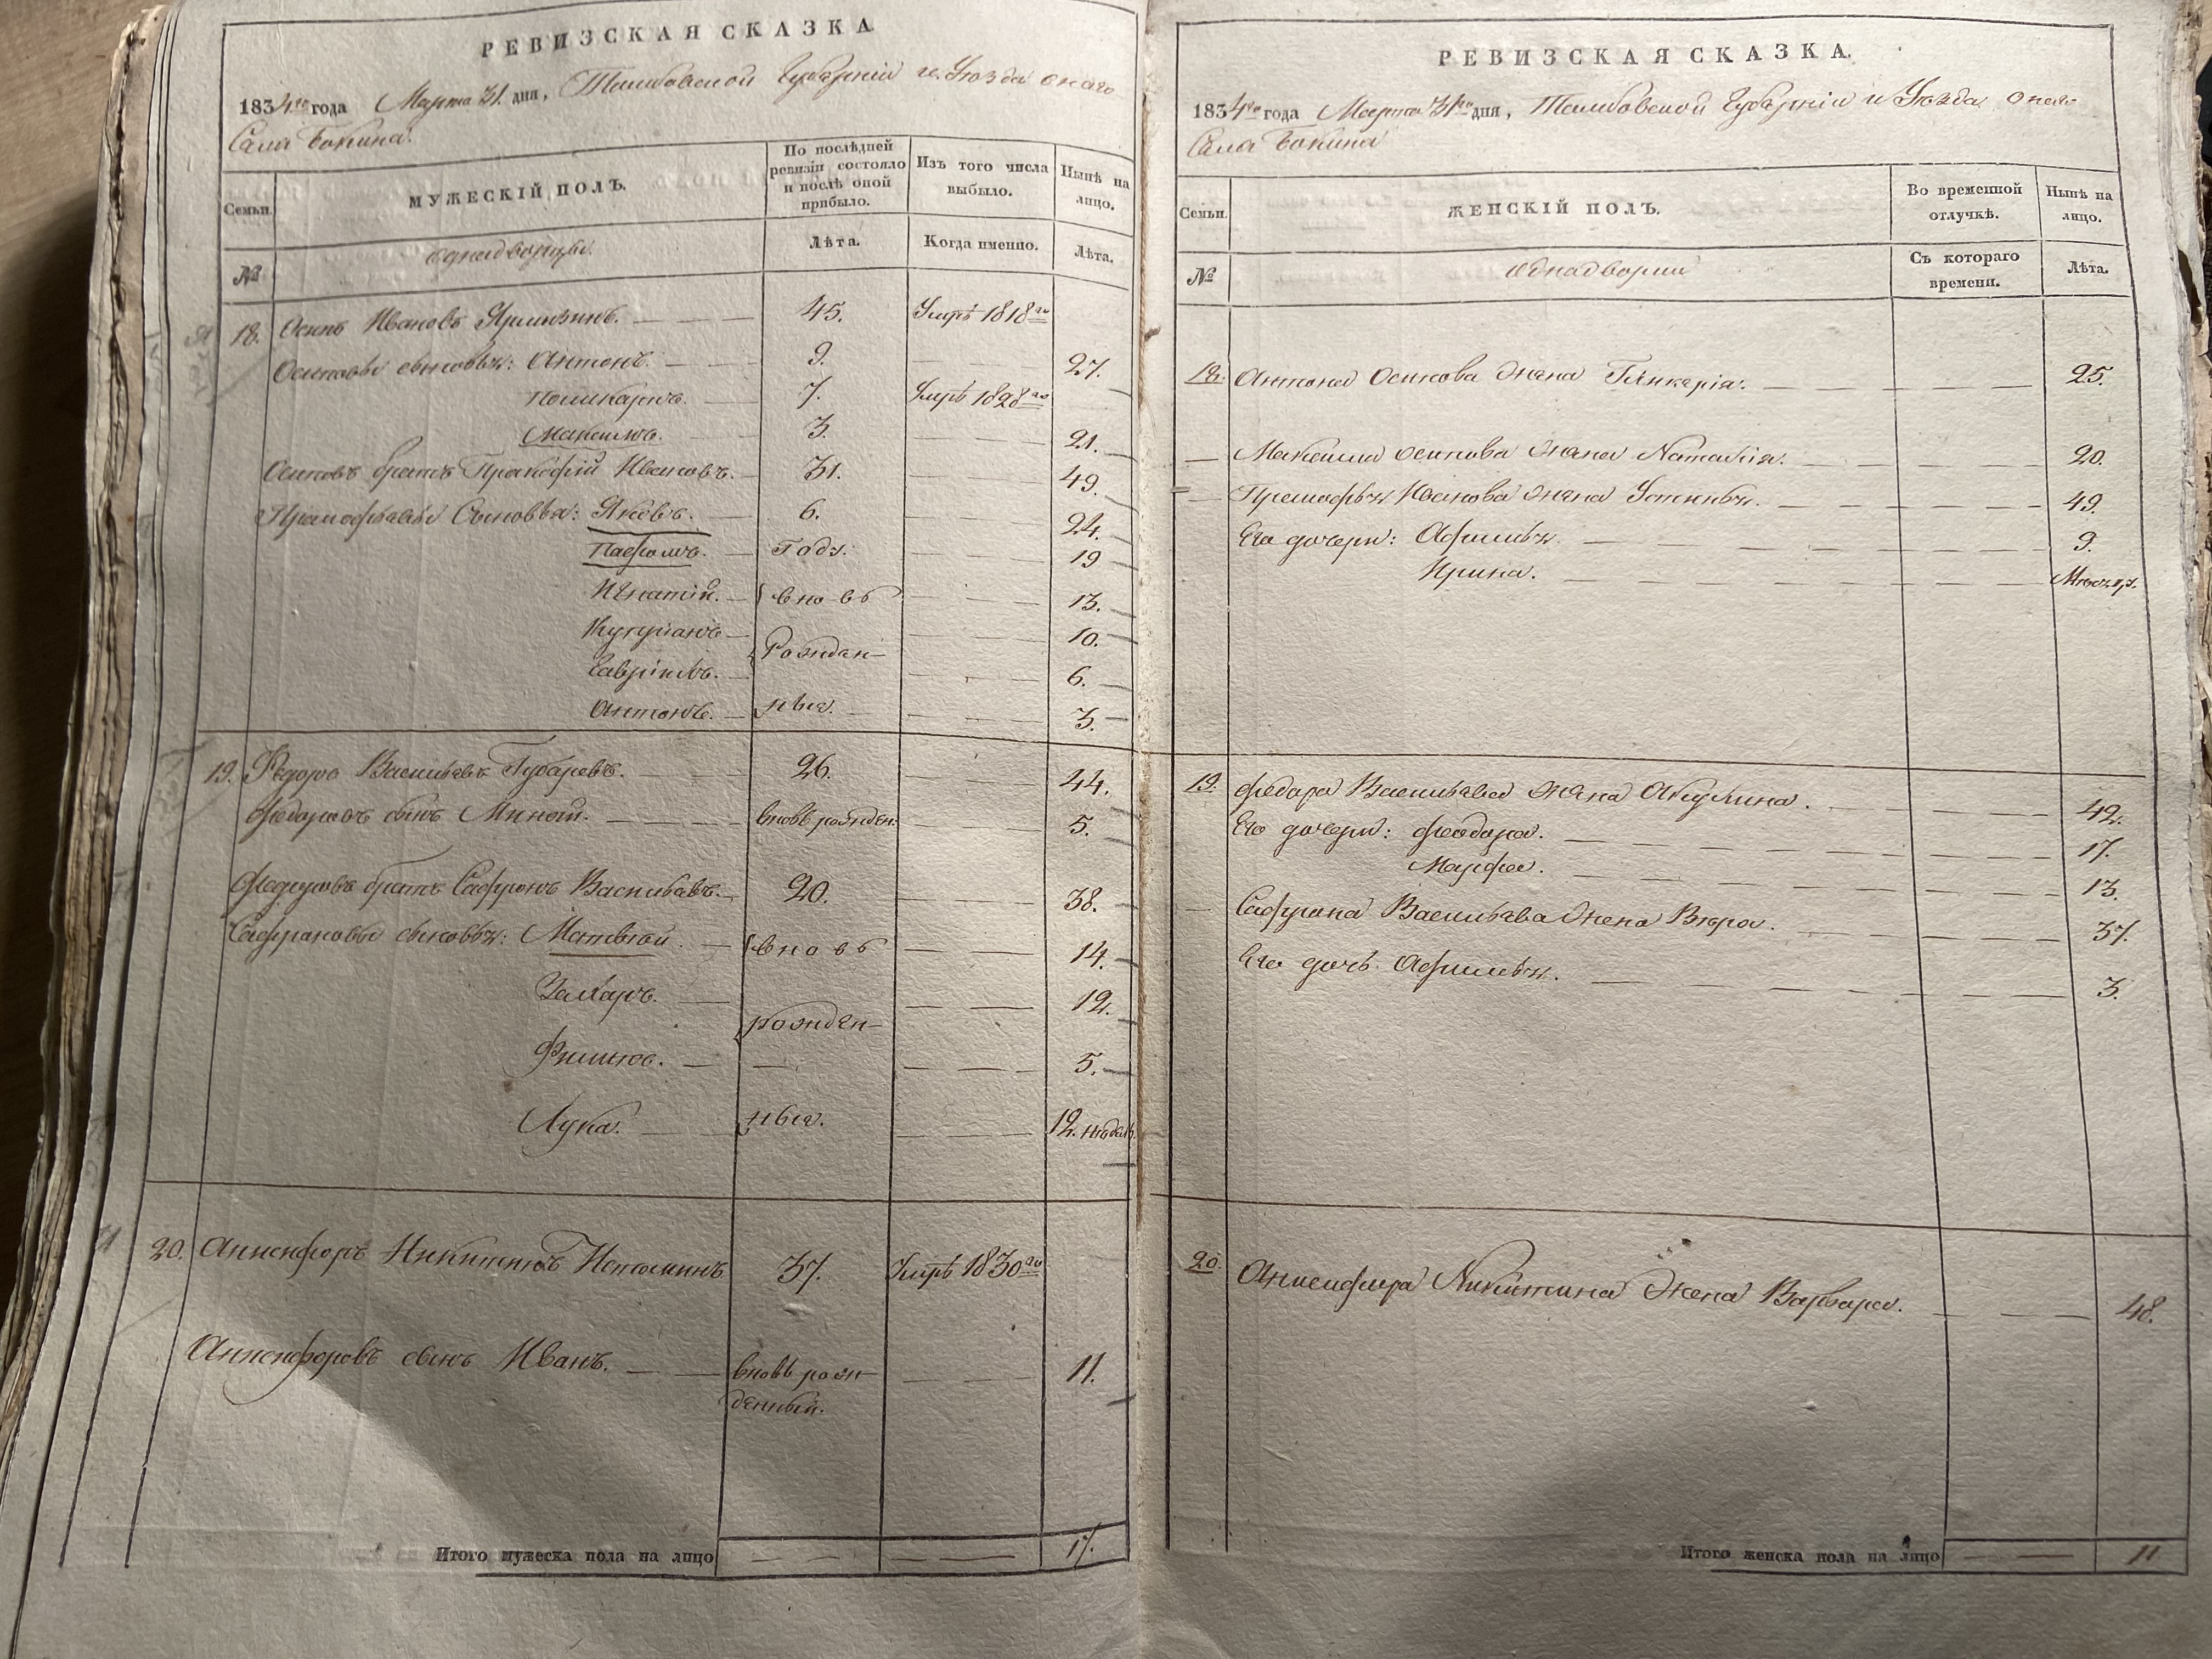 РЕВИЗСКАЯ СКАЗКА
1834го года Марта 31. дня, Тамбовской Губерніи и Уезда онаго
Села Бокина.
Семьи.
МУЖЕСКІЙ ПОЛЪ.
По послѣдней ревизіи состояло и послѣ оной прибыло.
Изъ того числа выбыло.
Нынѣ на лицо.
№
однодворцы.
Лѣта.
Когда именно.
Лѣта.
18. Осипъ Ивановъ 45. Умре 1818го
Осиповы сыновья: Антонъ. 9. 27.
Поликарпъ. 7. Умре 1828го
Максимъ. 3. 21.
Осиповъ братъ Пракофій Ивановъ. 31. 49.
Пракофьевы Сыновья: Яковъ. 6. 24.
Пафомъ. Году. 19
Игнатій. вновь 13.
Купріанъ 10.
Рожден-
Гаврилъ. 6.
Антонъ. ныя. 3.
19. Федоръ Васильевъ Губаревъ. 26. 44.
Федоровъ сынъ Миной. вновь рожден: 5.
Федоровъ братъ Сафронъ Васильевъ. 20. 38.
Сафроновы сыновья: Матвей. вновь 14.
Захаръ. 12.
рожден-
Филипъ. 5.
Лука. ныя. 12. недель
20. Анисифоръ Никитинъ Истоминъ 37. Умре 1830го
Анисифоровъ сынъ Иванъ. вновь рож- 11.
денный.
Итого мужеска пола на лицо 17.
РЕВИЗСКАЯ СКАЗКА.
1834го года Марта 31го дня, Тамбовской Губерніи и Уезда онаго
Села Бокина
Семьи.
ЖЕНСКІЙ ПОЛЪ.
Во временной отлучкѣ.
Нынѣ на лицо.
№
однодворки
Съ котораго времени.
Лѣта.
18. Антона Осипова жена Гликерія. 25.
Максима осипова жена Наталія. 20.
Пракофья Иванова жена Устинья. 49.
Его дочери: Афимья. 9.
Ирина. Месяц.
19. Федора Васильева жена Акулина. 42.
Его дочери: Феодора. 17.
Марфа. 13.
Сафрона Васильева жена Вера. 37.
Его дочь Афимья. 3.
20. Анисифора Никитина жена Варвара. 48.
Итого женска пола на лицо 11